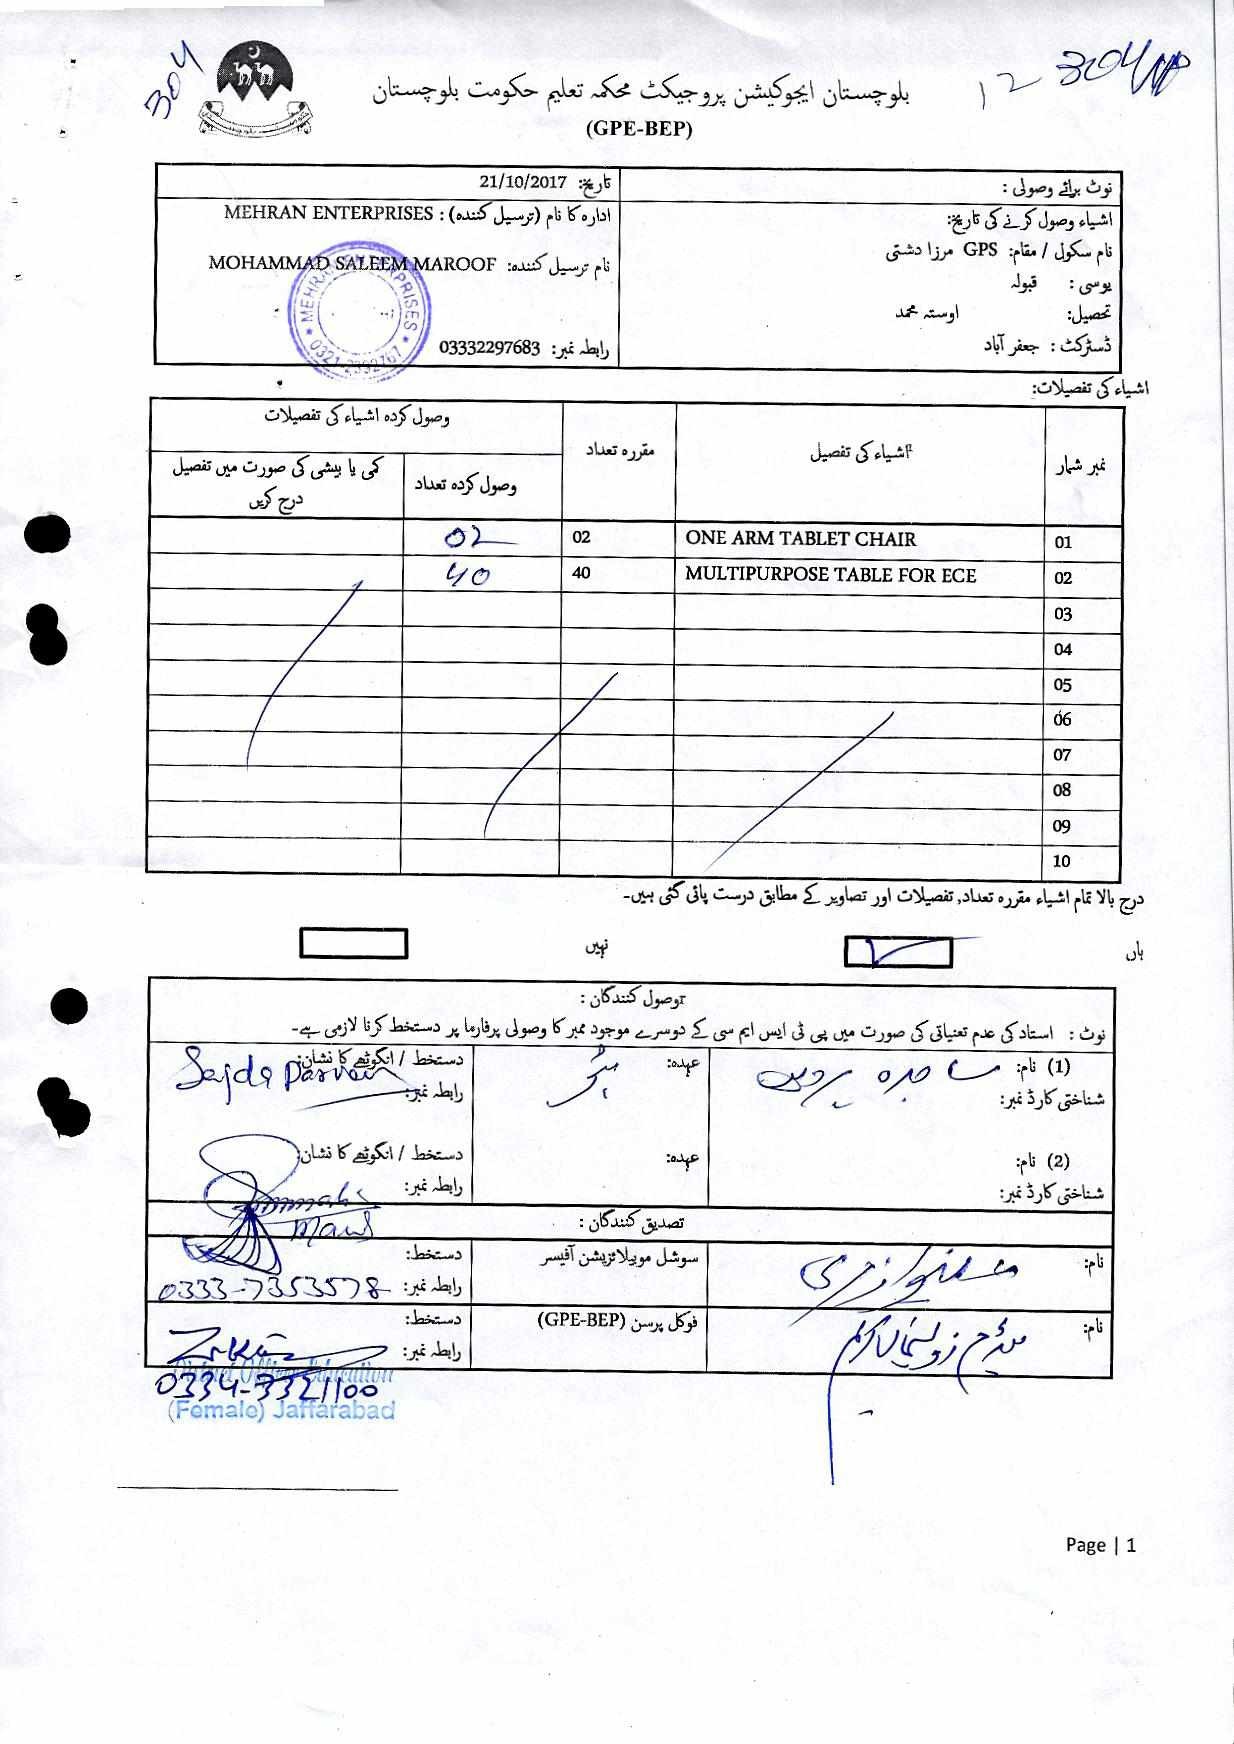 304
12 304
بلوچستان ایجوکیشن پروجیکٹ محکمہ تعلیم حکومت بلوچستان
(GPE-BEP)
نوٹ برائے وصولی :
تاریخ: 21/10/2017
اشیاء وصول کرنے کی تاریخ:
ادارہ کا نام (ترسیل کنندہ) : MEHRAN ENTERPRISES
نام سکول / مقام: GPS مرزا دشتی
نام ترسیل کنندہ: MOHAMMAD SALEEM MAROOF
یوسی : قبولہ
تحصیل: اوستہ محمد
ڈسٹرکٹ : جعفر آباد
رابطہ نمبر: 03332297683
MEHRAN ENTERPRISES
0321-2392767
اشیاء کی تفصیلات:
نمبر شمار
اشیاء کی تفصیل
مقررہ تعداد
وصول کردہ اشیاء کی تفصیلات
وصول کردہ تعداد
کمی یا بیشی کی صورت میں تفصیل
درج کریں
01 ONE ARM TABLET CHAIR 02 02
02 MULTIPURPOSE TABLE FOR ECE 40 40
03
04
05
06
07
08
09
10
درج بالا تمام اشیاء مقررہ تعداد, تفصیلات اور تصاویر کے مطابق درست پائی گئی ہیں۔
ہاں
نہیں
وصول کنندگان :
نوٹ : استاد کی عدم تعنیاتی کی صورت میں پی ٹی ایس ایم سی کے دوسرے موجود ممبر کا وصولی پرفارما پر دستخط کرنا لازمی ہے۔
(1) نام: ساجدہ پروین
عہدہ:
دستخط / انگوٹھے کا نشان: Sajda Parveen
شناختی کارڈ نمبر:
رابطہ نمبر:
(2) نام:
عہدہ:
دستخط / انگوٹھے کا نشان:
شناختی کارڈ نمبر:
رابطہ نمبر:
تصدیق کنندگان :
نام:
سوشل موبیلائزیشن آفیسر
دستخط:
رابطہ نمبر: 0333-7353578
نام:
فوکل پرسن (GPE-BEP)
دستخط:
رابطہ نمبر:
District Officer Education
0334-3321100
(Female) Jaffarabad
Page | 1